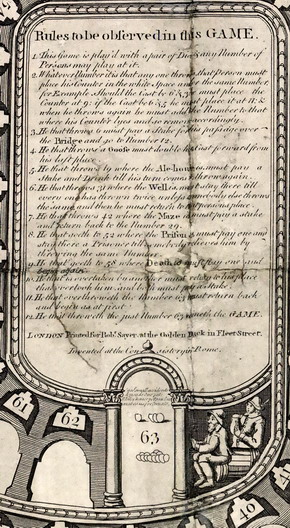 Rules to be observed in this GAME.
1. This Game is play'd with a pair of Dice any Number of
Persons may play at it.
2. Whatever Number it is that any one throws that person must
place his Counter in the white Space under the same Number
for Example Should the Cast be 6 & 3 must place the
Counter at 9: if the Cast be 6 & 5 he must place it at 11: &
when he throws again he must add the Number to that
where his Counter lyes and so remove accordingly.
3. He that throws 6 must pay a stake for his passidge over
the Bridge and go to Number 12.
4. He that throws a Goose must double his Cast forward from
his last place
5. He that throws 19 where the Ale-house is must pay a
Stake and Drink till his turn comes to throw again.
6. He that throws 31 where the Well is must stay there till
every one has thrown twice unless somebody else throws
the same and then he must return to that persons place
7. He that throws 42 where the Maze is must pay a stake
and return back to the Number 29.
8. He that goeth to 52 where the Prison is must pay one and
stay there a Prisoner till somebody relieves him by
throwing the same Number
9. He that goeth to 58 where Death is must pay one and
begin again.
10. He that is overtaken by another must return to his place
that overtook him and by must pay a stake.
11. He that overthroweth the Number 63 must return back
and begin as at first
12. He that throweth the just Number 63 winneth the GAME.
LONDON Printed for Robt. Sayer, at the Golden Buck in Fleet Street.
Invented at the Consistory in Rome.
61
62
63
40